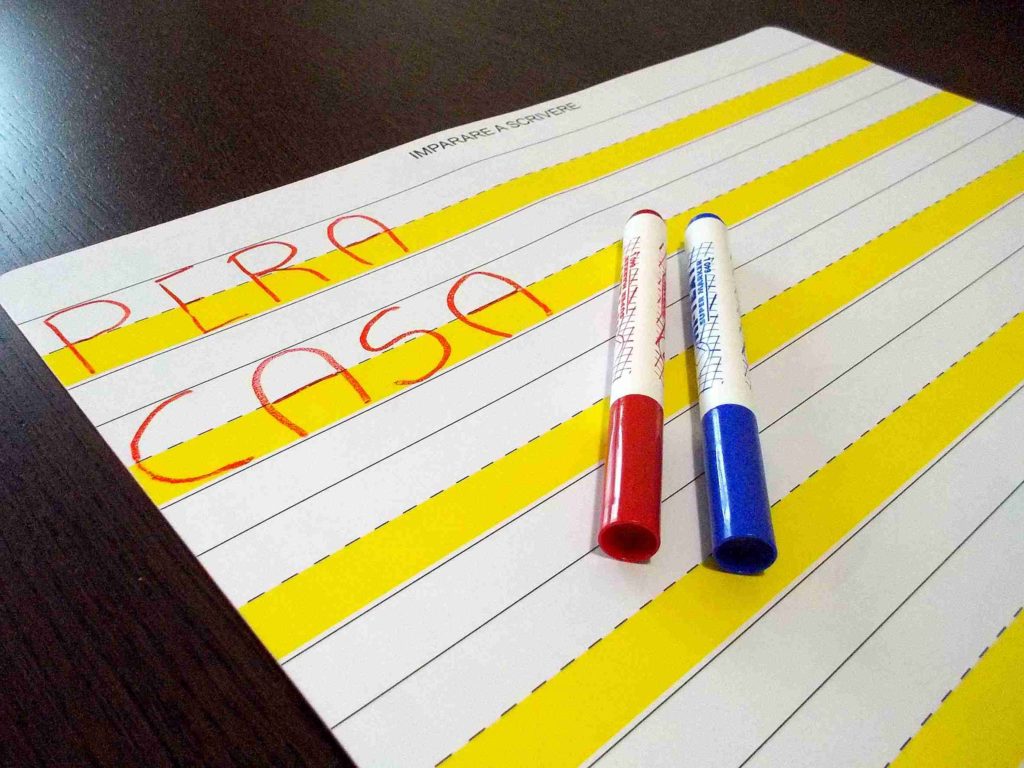 IMPARARE A SCRIVERE
PERA
CASA